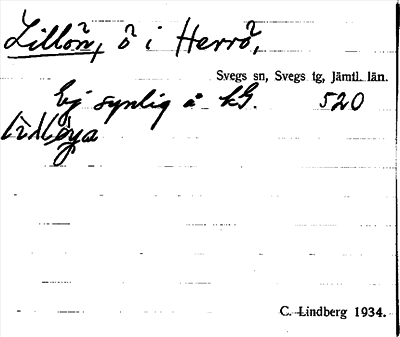 Lillön, ö i Herrö,
Svegs sn, Svegs tg, Jämtl. län.
Ej synlig å kG. 520
C. Lindberg 1934.